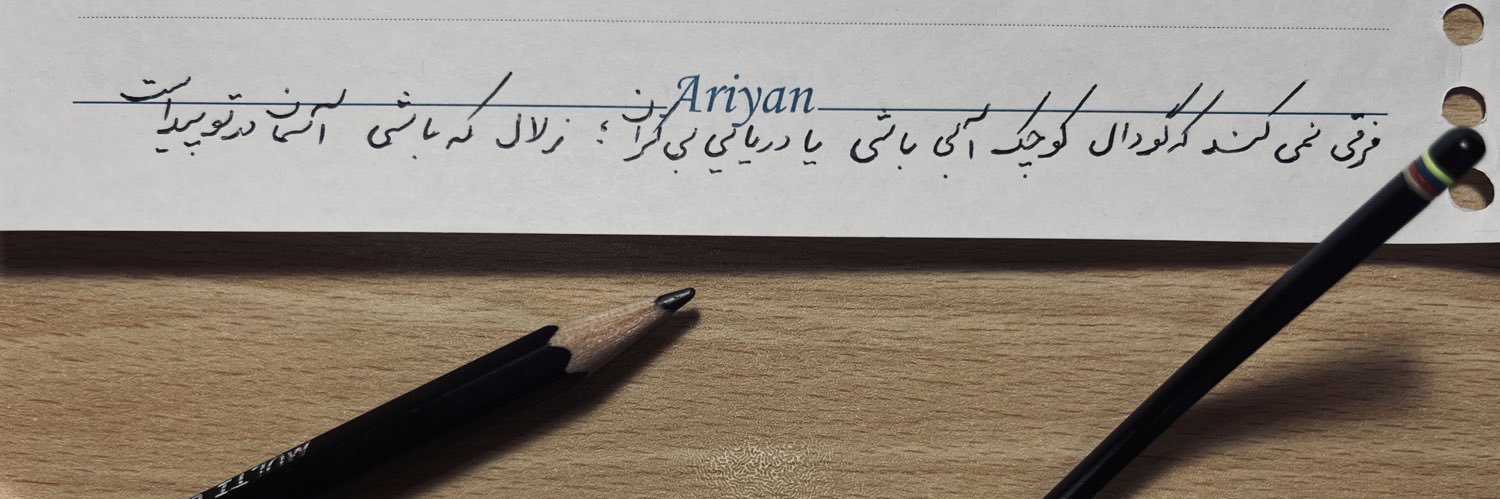 Ariyan
فرقی نمی کند که گودال کوچک آبی باشی یا دریایی بی کران ؛ زلال که باشی آسمان در تو پیداست
MULTI